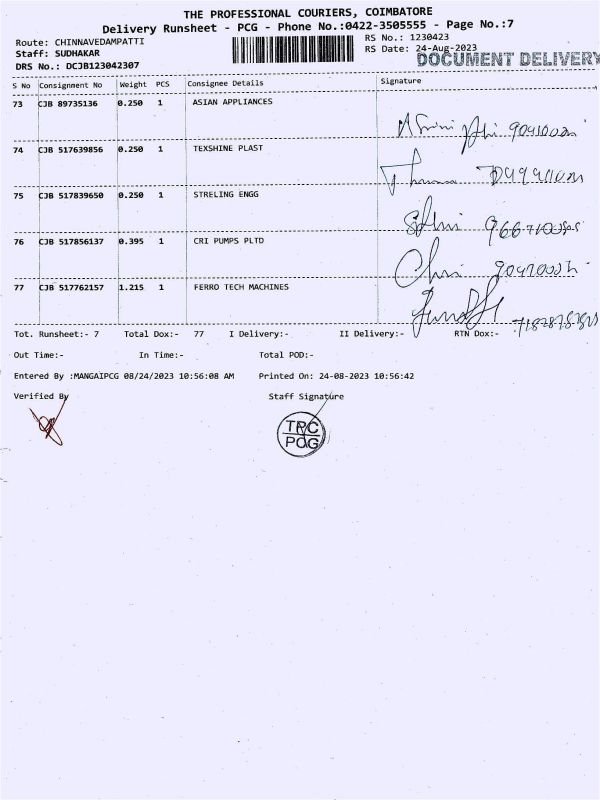 THE PROFESSIONAL COURIERS, COIMBATORE
Delivery Runsheet - PCG - Phone No.:0422-3505555 - Page No.:7
Route: CHINNAVEDAMPATTI RS No.: 1230423
Staff: SUDHAKAR RS Date: 24-Aug-2023
DOCUMENT DELIVERY
DRS No.: DCJB123042307
S No Consignment No Weight PCS Consignee Details Signature
73 CJB 89735136 0.250 1 ASIAN APPLIANCES
74 CJB 517639856 0.250 1 TEXSHINE PLAST
75 CJB 517839650 0.250 1 STRELING ENGG
76 CJB 517856137 0.395 1 CRI PUMPS PLTD
77 CJB 517762157 1.215 1 FERRO TECH MACHINES
Tot. Runsheet:- 7 Total Dox:- 77 I Delivery:- II Delivery:- RTN Dox:-
Out Time:- In Time:- Total POD:-
Entered By :MANGAIPCG 08/24/2023 10:56:08 AM Printed On: 24-08-2023 10:56:42
Verified By Staff Signature
TPC
PCG